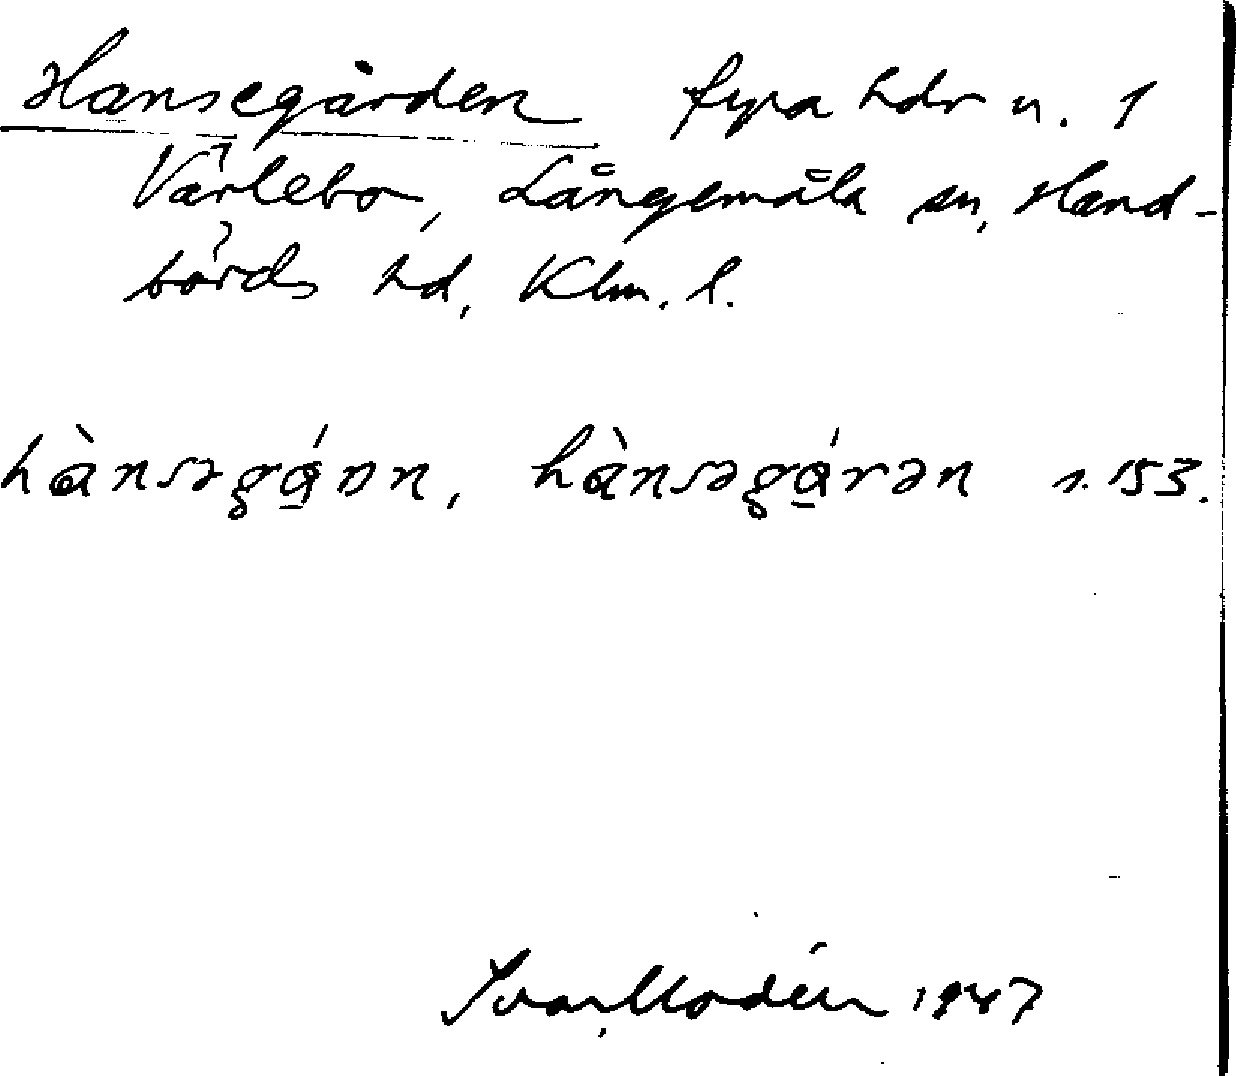 Hansegården fyra hdr n. 1
Värlebo, Långemåla sn, Hand-
börds hd, Klm. l.
hànsəgá̱ɒn, hànsəgá̱rən s. 153.
Ivar Modéer 1947